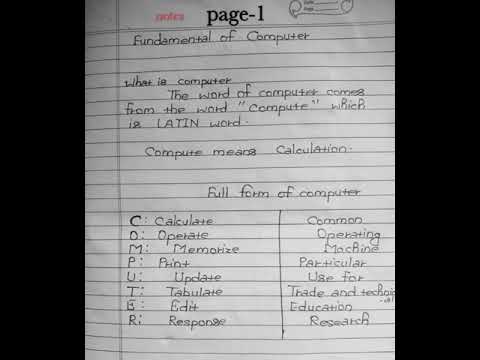 notes page-1
Fundamental of Computer
What is computer
The word of computer comes
from the word "Compute" which
is LATIN word.
Compute means Calculation.
Full form of computer
C: Calculate Common
O: Operate Operating
M: Memorize Machine
P: Print Particular
U: Update Use for
T: Tabulate Trade and technic-al
E: Edit Education
R: Response Research